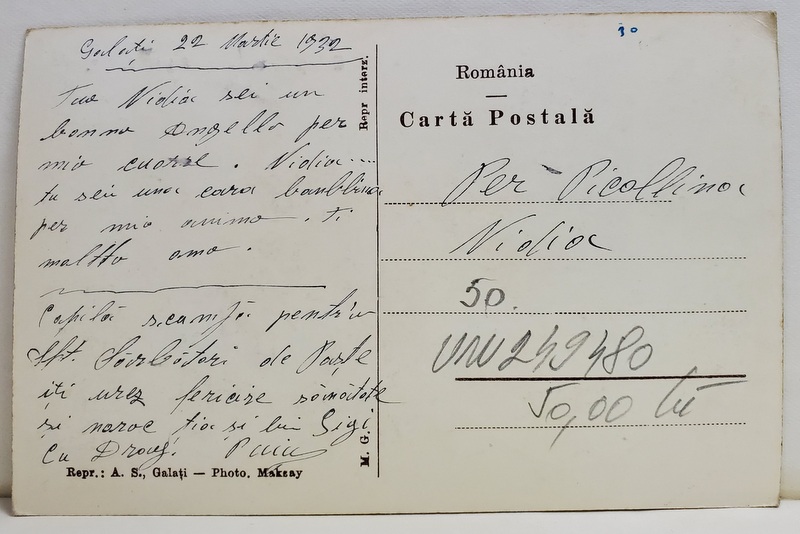 Galati 22 Martie 1932
Tuo Nidia sei un
bonno Angello per
mio cuorre. Nidia....
tu sei una cara banblina
per mio animo. Ti
maltto amo.
Copilă scumpă pentru
Sft. Sărbători de Paște
iți urez fericire sănătate
și naroc ția și lui Gigi
Cu Drag.
Repr.: A. S., Galați — Photo. Maksay
Repr interz.
M. G.
30
România
Cartă Postală
Per Picollina
Nidia
50.
UNV249480
50,00 lei